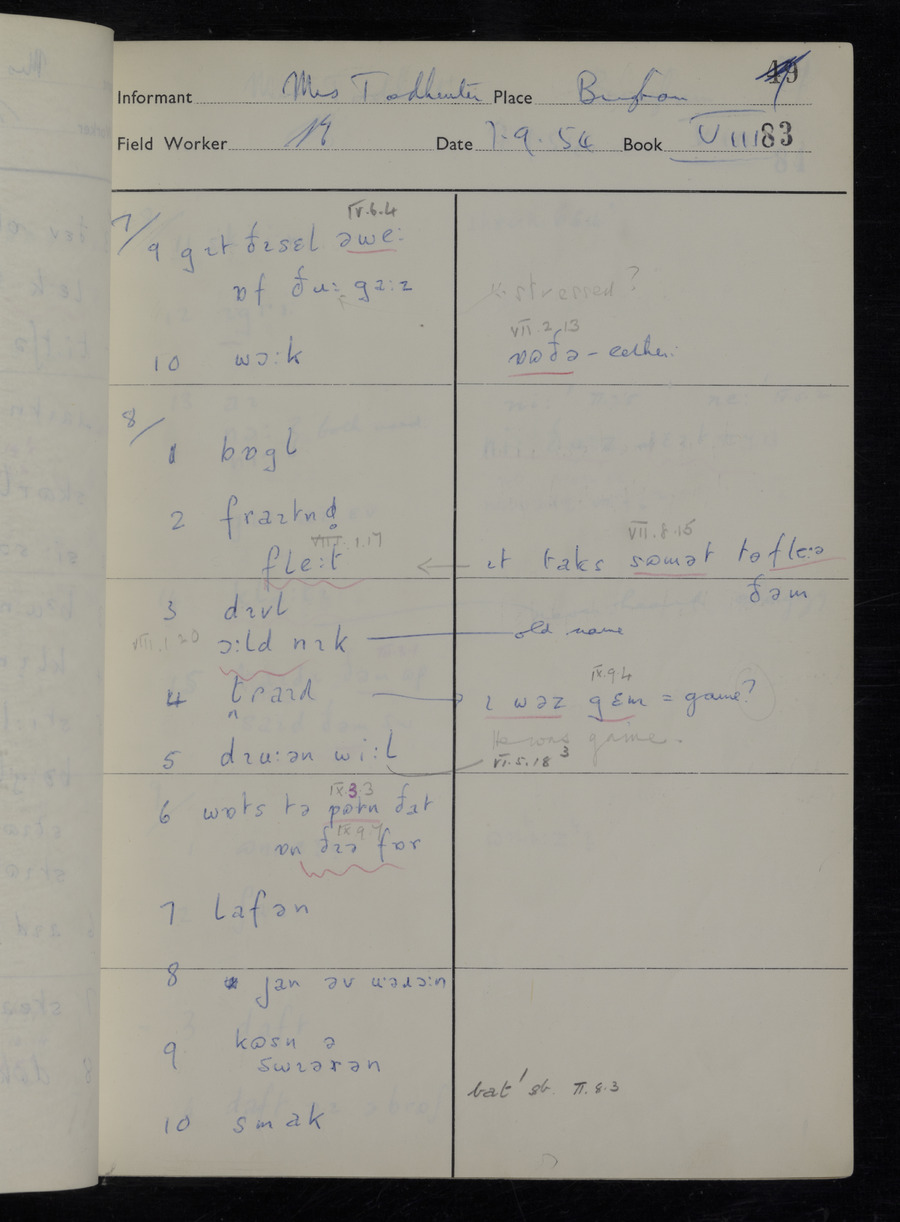 49
Informant Mrs Todhunter Place Brigham
Field Worker Date 7.9.54 Book VIII 83
7/
IV.6.4
9 gɪt ðɪsɛl əwe:
ɒf ðu:
x stressed?
VII.2.13
10 wɔ:k
ɒðə - either.
8/
1 bɒgl
2 fraɪtnd
VIII.1.17
fle:t
VII.8.15
← ɪt taks səmət tə fle:ə
ðəm
3 dɪvl
VIII.1.20 ɔ:ld nɪk — old name
4 traɪd
IX.9.4
ɪ wəz gɛm = game?
He was game.
5 wi:l
VI.5.18 3
IX.3.3
6 wɒts tə pɒtn ðɪt
IX.9.7
ɒn ðɪə fɒr
7 lafən
8 jan əv
9 kɒsn ə
swɪərən
10 smak
bat' sb. II.8.3